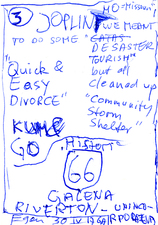 3 JOPLIN MO=Missouri
WE MEANT
TO DO SOME "CATAS
DISASTER
TOURISM"
"Quick & but all
Easy cleaned up
DIVORCE" "Community
Storm
Shelter"
KUM &
GO "HISTORIC
66
GALENA
RIVERTON - UNINCO-
RPORATED